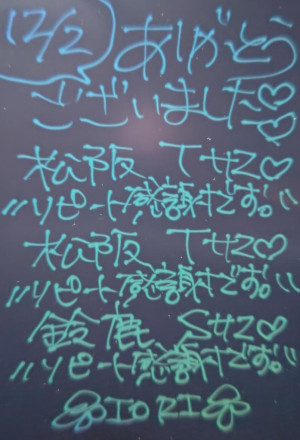 12/2 ありがとう
ございました♡♡
松阪 Tサン♡
"リピート感謝です。"
松阪 Tサン♡
"リピート感謝です。"
鈴鹿 Sサン♡
"リピート感謝です。"
IORI